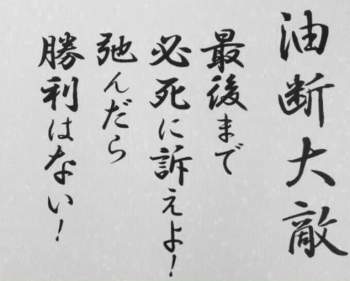 油断大敵
最後まで
必死に訴えよ！
弛んだら
勝利はない！